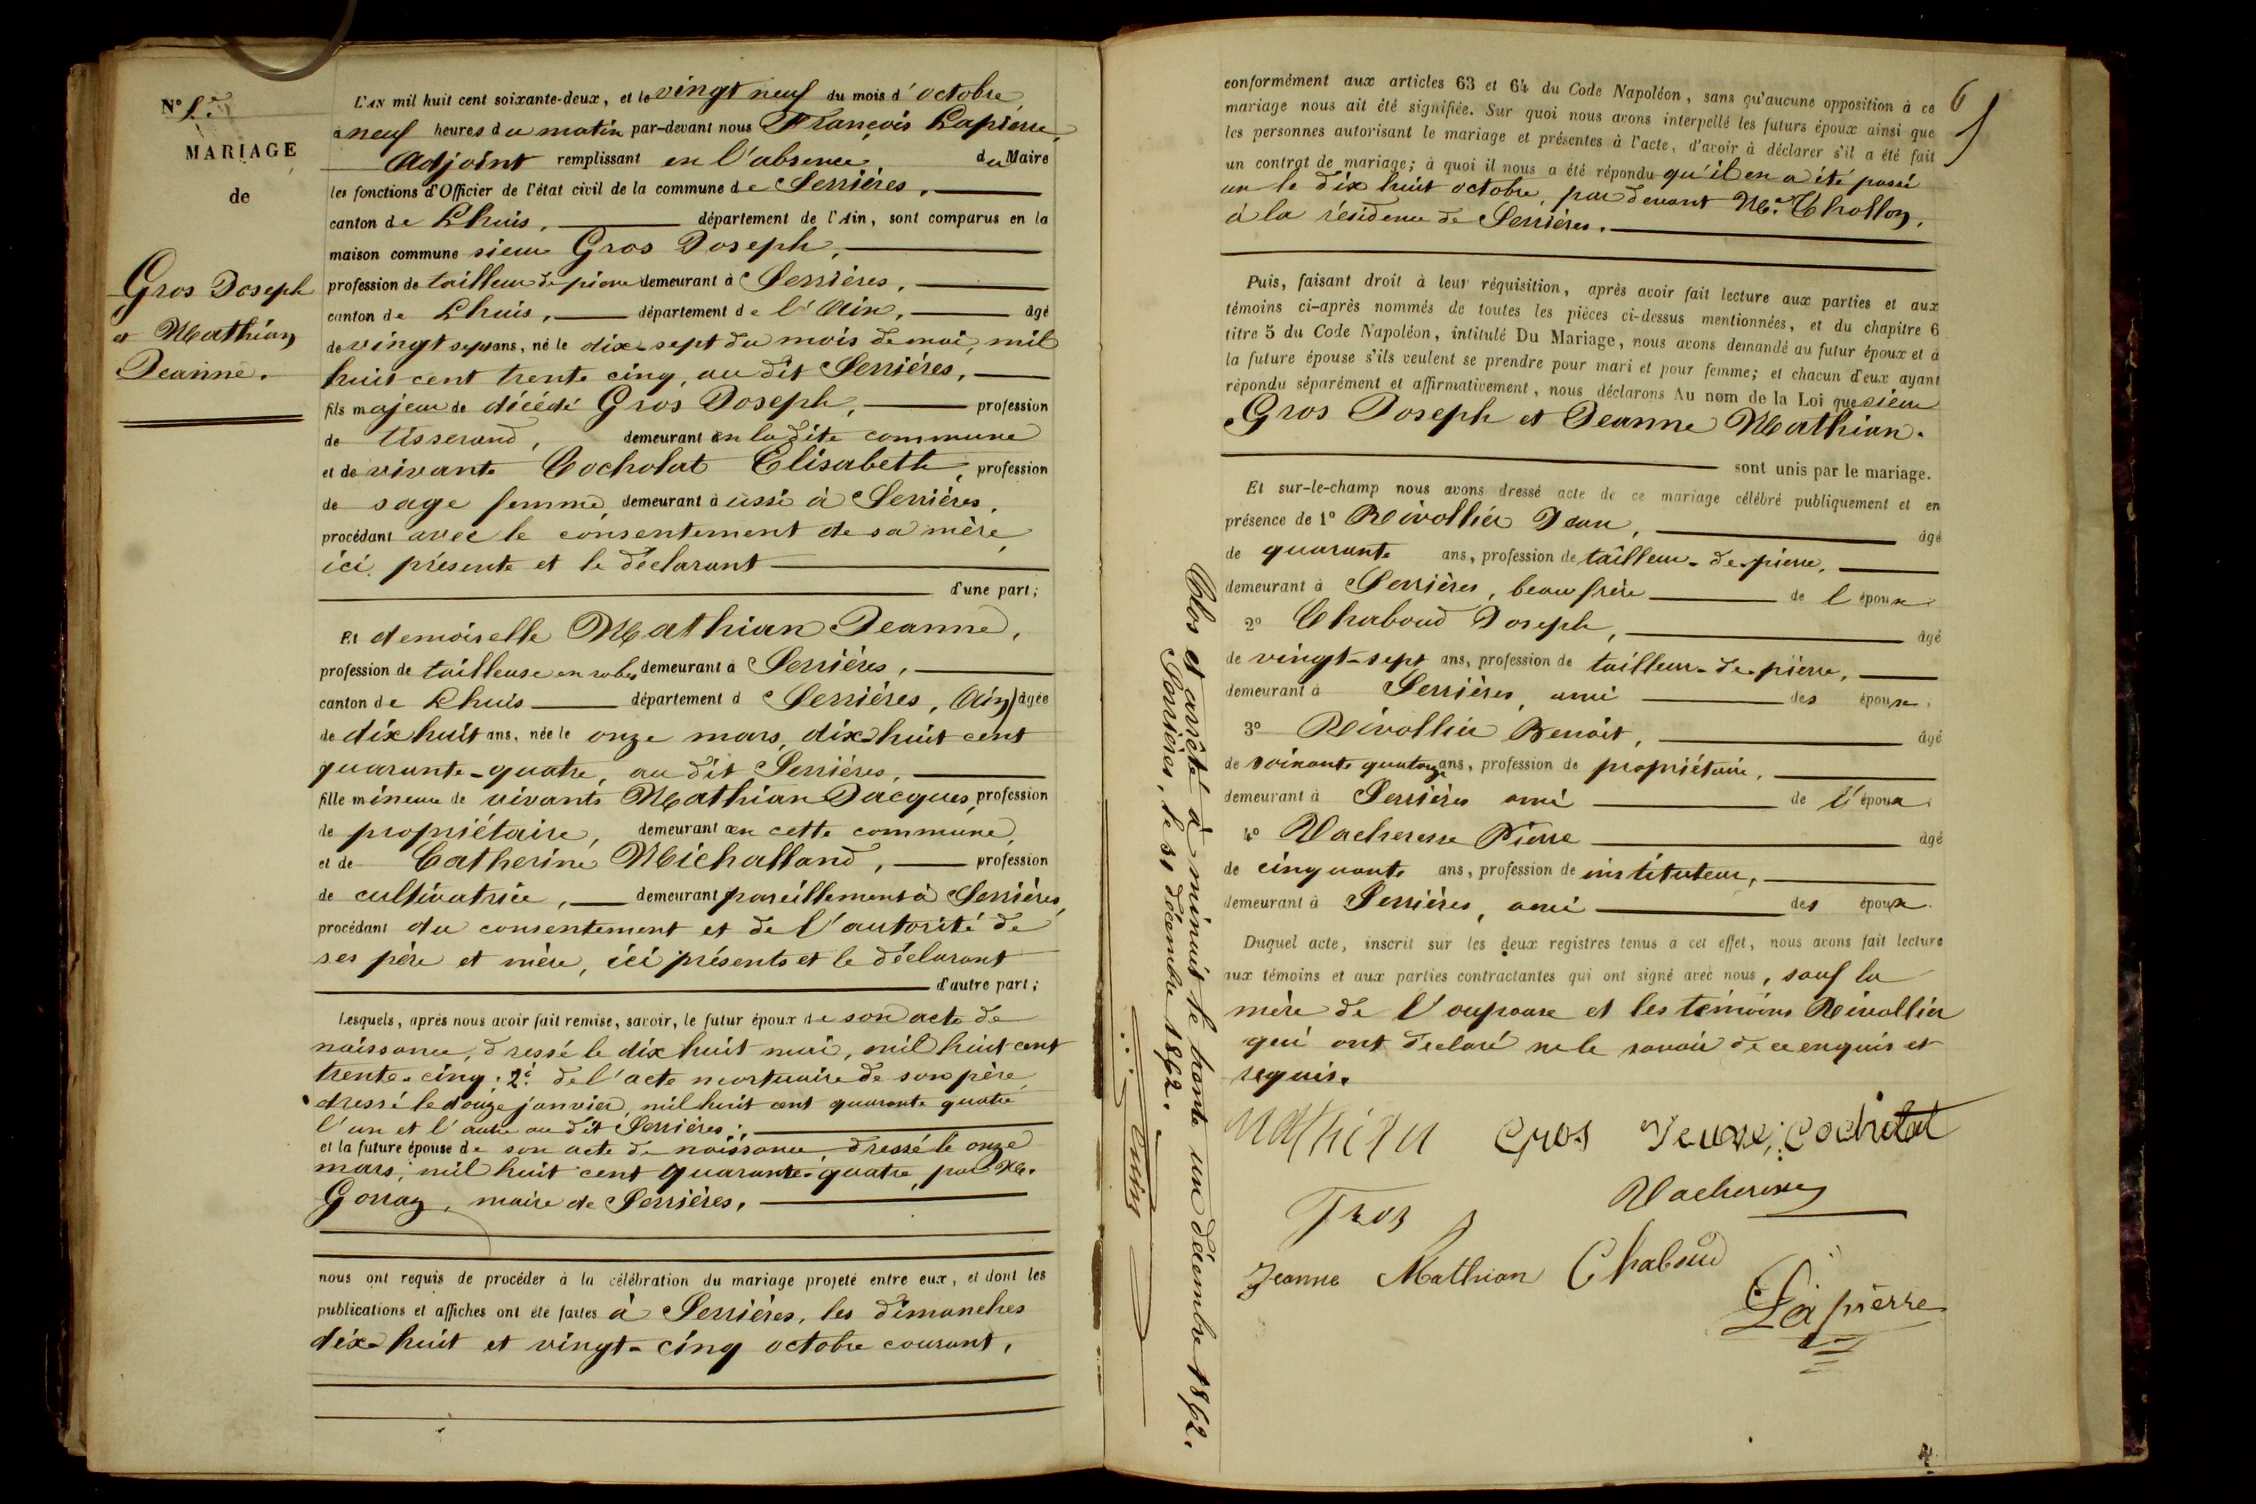 N° 5.e
MARIAGE
de
Gros Joseph
et Mathian
Jeanne.
L'AN mil huit cent soixante-deux, et le vingt neuf du mois d'octobre,
à neuf heures du matin par-devant nous François Lapierre,
Adjoint remplissant en l'absence, du Maire
les fonctions d'Officier de l'état civil de la commune de Serrières,
canton de Lhuis, département de l'Ain, sont comparus en la
maison commune sieur Gros Joseph,
profession de tailleur de pierre demeurant à Serrières,
canton de Lhuis, département de l'Ain, âgé
de vingt sept ans, né le dix-sept du mois de mai, mil
huit cent trente cinq, au dit Serrières,
fils majeur de décédé Gros Joseph, profession
de tisserand, demeurant en la dite commune
et de vivante Cocholat Elisabeth, profession
de sage femme, demeurant aussi à Serrières,
procédant avec le consentement de sa mère,
ici présente et le déclarant
d'une part;
Et demoiselle Mathian Jeanne,
profession de tailleuse en robes demeurant à Serrières,
canton de Lhuis département d Serrières, (Ain) âgée
de dix huit ans, née le onze mars, dix-huit cent
quarante-quatre, au dit Serrières,
fille mineure de vivants Mathian Jacques, profession
de propriétaire, demeurant en cette commune,
et de Catherine Michalland, profession
de cultivatrice, demeurant pareillement à Serrières,
procédant du consentement et de l'autorité de
ses père et mère, ici présents et le déclarant
d'autre part;
Lesquels, après nous avoir fait remise, savoir, le futur époux de son acte de
naissance, dressé le dix huit mai, mil huit cent
trente-cinq; 2.° de l'acte mortuaire de son père,
dressé le douze janvier, mil huit cent quarante quatre
l'un et l'autre au dit Serrières;
et la future épouse de son acte de naissance, dressé le onze
mars, mil huit cent quarante-quatre, par M.
Gonraz, maire de Serrières,
nous ont requis de procéder à la célébration du mariage projeté entre eux, et dont les
publications et affiches ont été faites à Serrières, les dimanches
dix-huit et vingt-cinq octobre courant,
6
conformément aux articles 63 et 64 du Code Napoléon, sans qu'aucune opposition à ce
mariage nous ait été signifiée. Sur quoi nous avons interpellé les futurs époux ainsi que
les personnes autorisant le mariage et présentes à l'acte, d'avoir à déclarer s'il a été fait
un contrat de mariage; à quoi il nous a été répondu qu'il en a été passé
un le dix huit octobre, par devant M.e Chollon,
à la résidence de Serrières.
Puis, faisant droit à leur réquisition, après avoir fait lecture aux parties et aux
témoins ci-après nommés de toutes les pièces ci-dessus mentionnées, et du chapitre 6
titre 5 du Code Napoléon, intitulé Du Mariage, nous avons demandé au futur époux et à
la future épouse s'ils veulent se prendre pour mari et pour femme; et chacun d'eux ayant
répondu séparément et affirmativement, nous déclarons Au nom de la Loi que sieur
Gros Joseph et Jeanne Mathian.
sont unis par le mariage.
Et sur-le-champ nous avons dressé acte de ce mariage célébré publiquement et en
présence de 1° Révollier Jean, âgé
de quarante ans, profession de tailleur-de-pierre,
demeurant à Serrières, beau frère de l'époux
2° Chaboud Joseph, âgé
de vingt-sept ans, profession de tailleur-de-pierre,
demeurant à Serrières, ami des époux.
3° Révollier Benoit, âgé
de soixante quatorze ans, profession de propriétaire,
demeurant à Serrières ami de l'époux.
4° Vacheresse Pierre âgé
de cinquante ans, profession de instituteur,
demeurant à Serrières, ami des époux.
Duquel acte, inscrit sur les deux registres tenus à cet effet, nous avons fait lecture
aux témoins et aux parties contractantes qui ont signé avec nous, sauf la
mère de l'oupouse et les témoins Révollier
qui ont déclaré ne le savoir de ce enquis et
requis.
Mathian Gros Veuve, Cocholat
Gros Vacheresse
Jeanne Mathian Chaboud
Lapierre
Clos et arrêté à minuit le trente un décembre 1862.
Serrières, le 31 décembre 1862.